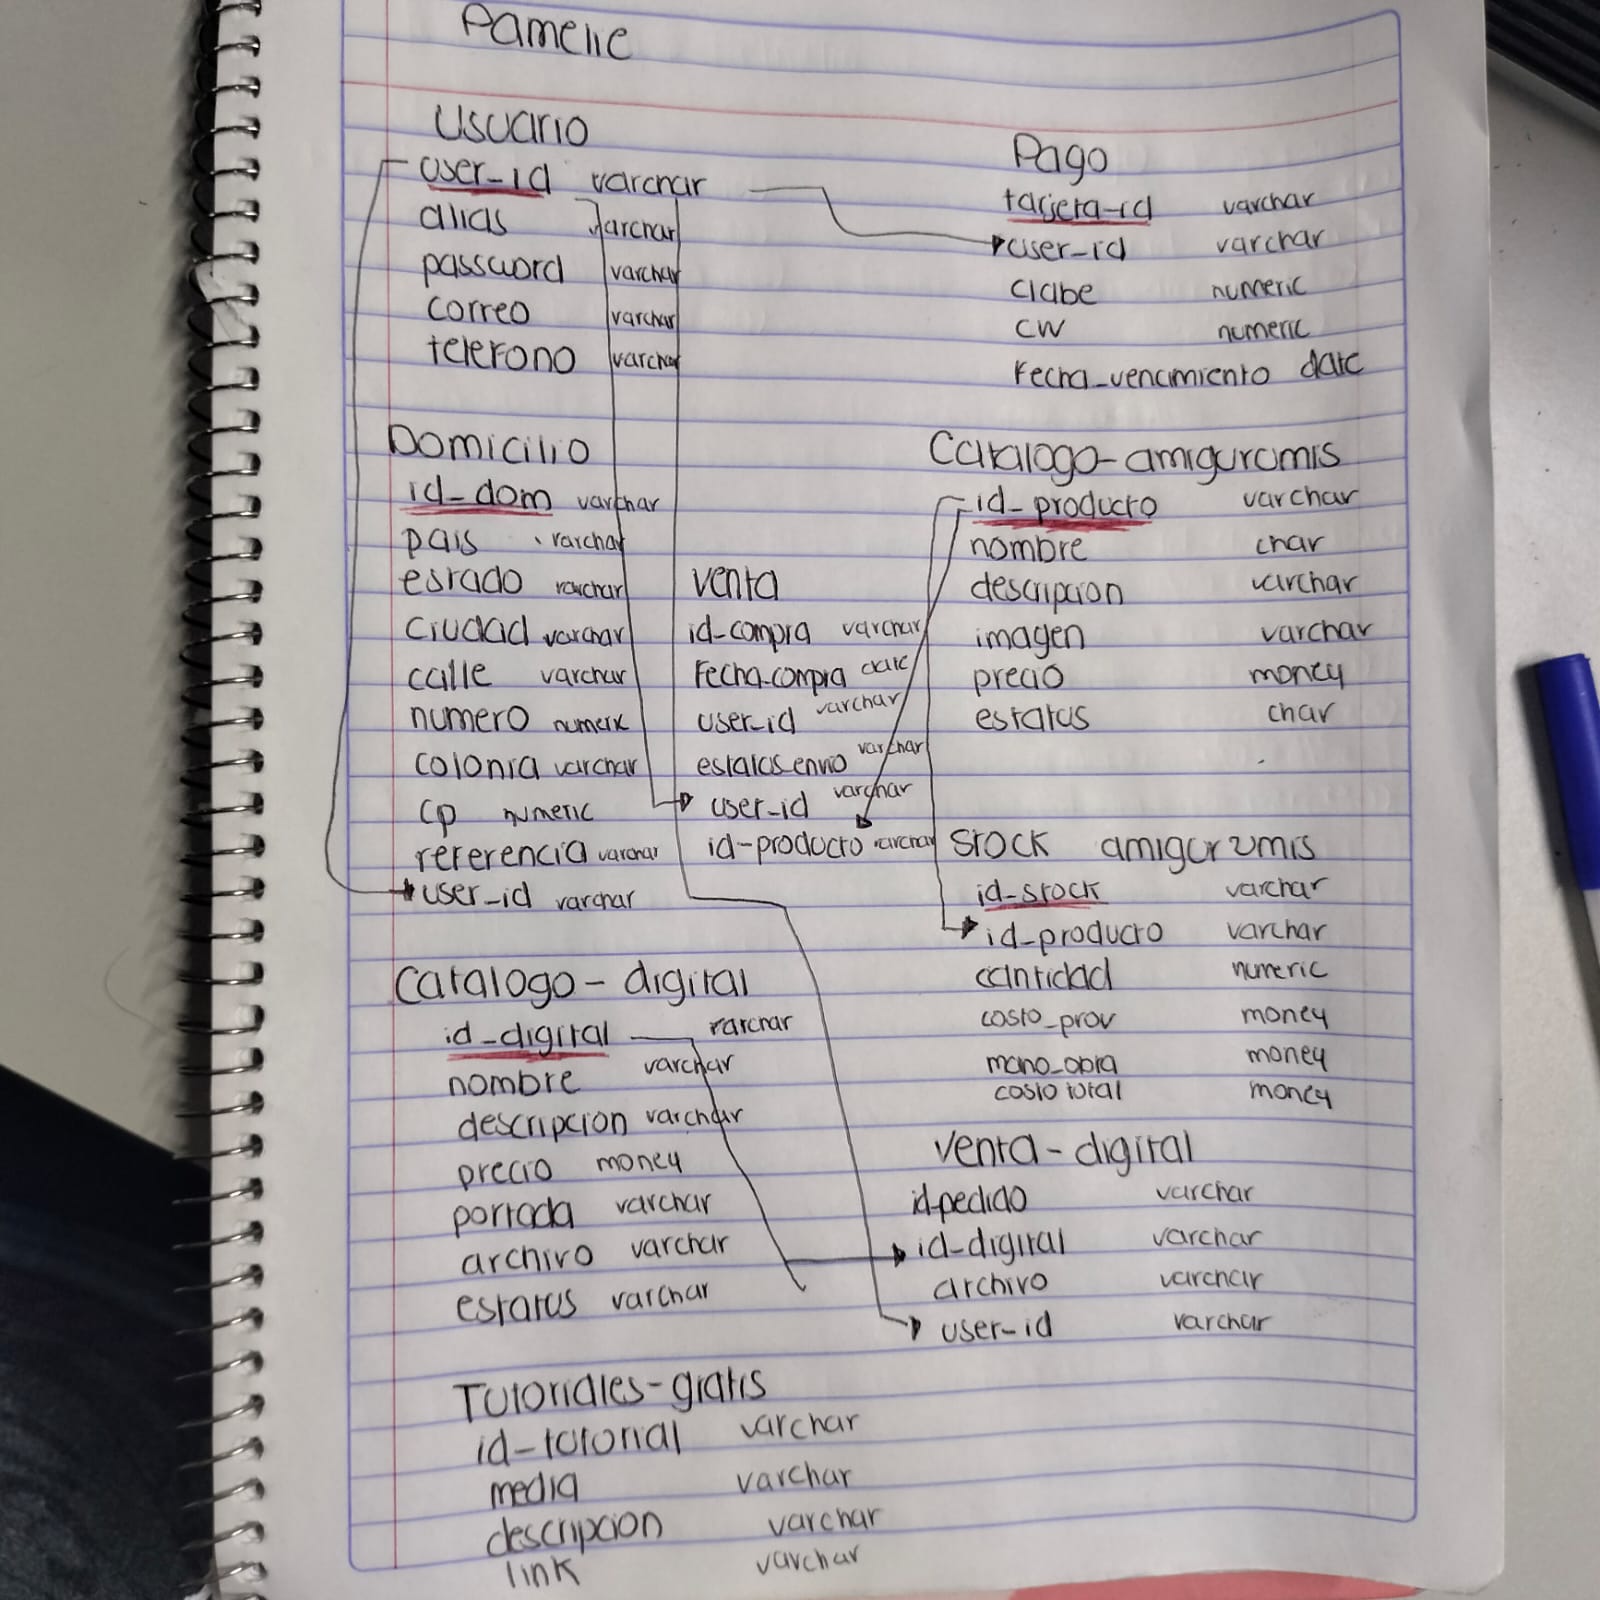 Pamelie
Usuario
user_id varchar
alias varchar
password varchar
correo varchar
telefono varchar
Pago
tarjeta-id varchar
user_id varchar
clabe numeric
cvv numeric
fecha_vencimiento date
Domicilio
id_dom varchar
pais varchar
estado varchar
ciudad varchar
calle varchar
numero numeric
colonia varchar
cp numeric
referencia varchar
user_id varchar
venta
id-compra varchar
Fecha-compra date
user_id varchar
estatus envio varchar
user-id varchar
id-producto varchar
Catalogo-amigurumis
id_producto varchar
nombre char
descripcion varchar
imagen varchar
precio money
estatus char
Stock amigurumis
id_stock varchar
id_producto varchar
cantidad numeric
costo_prov money
mano_obra money
costo total money
Catalogo-digital
id_digital varchar
nombre varchar
descripcion varchar
precio money
portada varchar
archivo varchar
estatus varchar
venta-digital
id-pedido varchar
id-digital varchar
archivo varchar
user-id varchar
Tutoriales-gratis
id-tutorial varchar
media varchar
descripcion varchar
link varchar